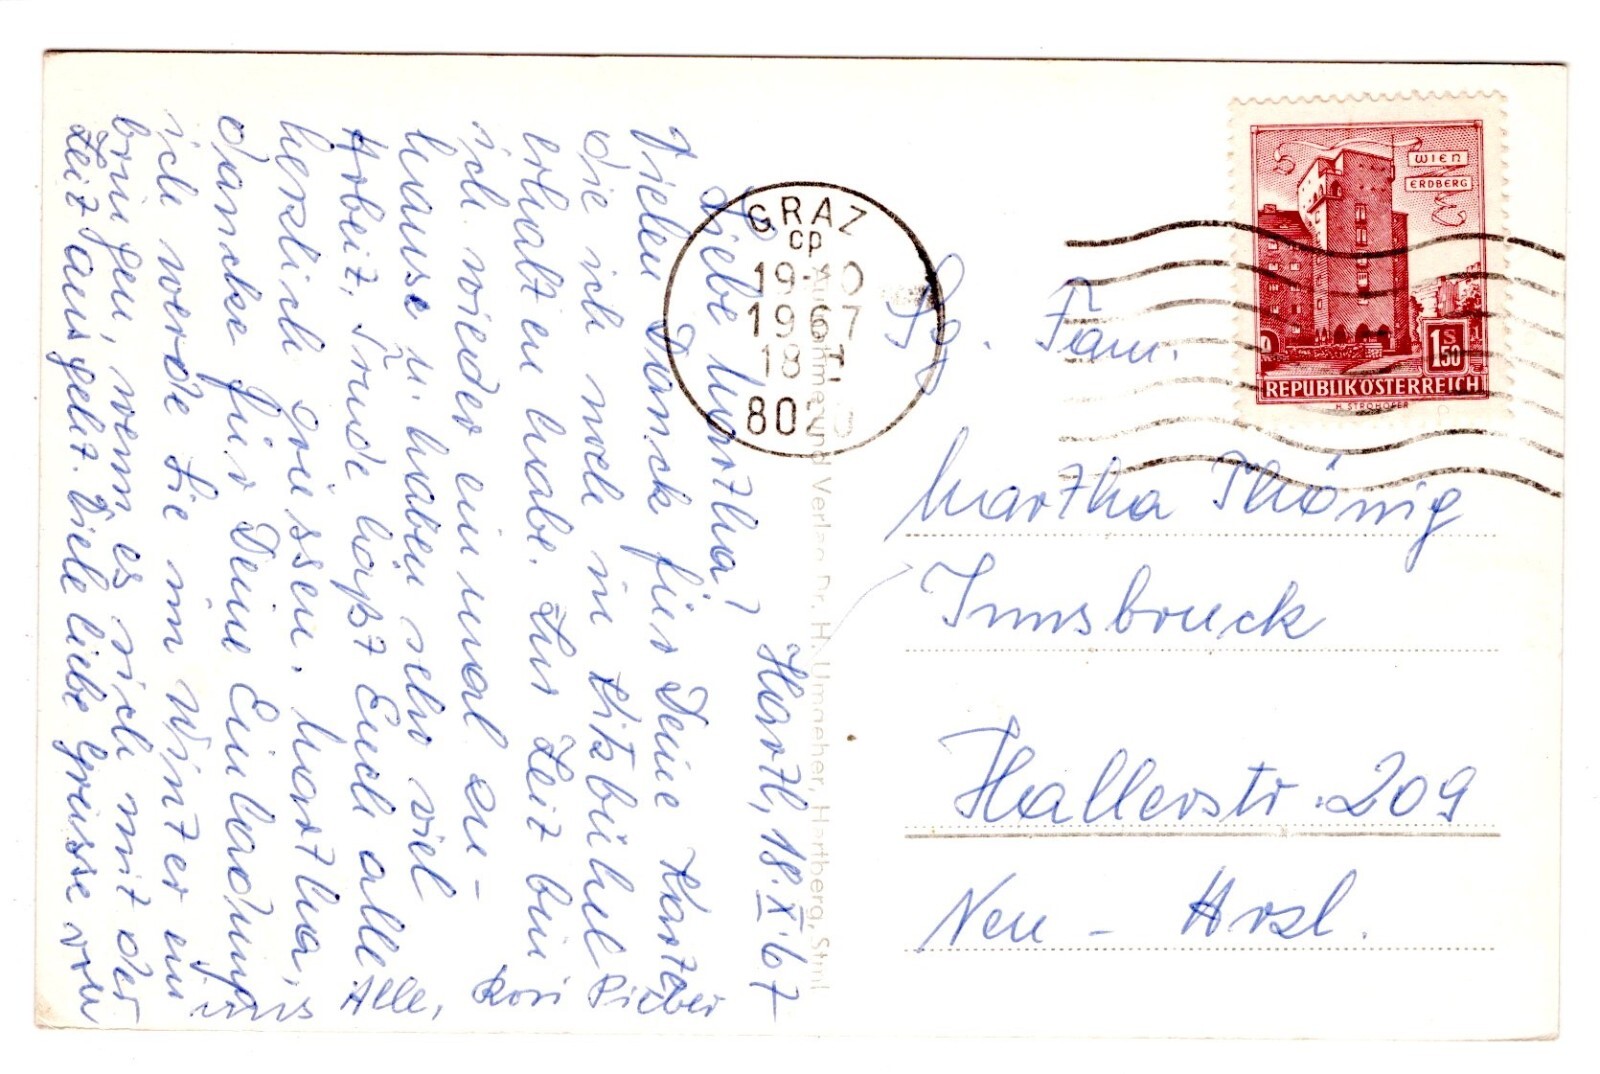 Hartl, 18.X.67
Liebe Martha!
Vielen Danck für Deine Karte
die ich noch in Kitzbühel
erhalten habe. Zur Zeit bin
ich wieder ein mal zu-
hause u. haben sehr viel
Arbeit. Trude läßt Euch alle
herzlich grüssen. Martha,
dancke für Deine Einladung
ich werde Sie im Winter ein
bringen, wenn es sich mit der
Zeit ausgeht. Viele liebe Grüsse von
uns Alle, Rosi Sieber
GRAZ
cp
19-10
1967
18
802
Aufnahme und Verlag Dr. H. Umgeher, Hartberg, Stmk
WIEN
ERDBERG
1 S 50
REPUBLIK ÖSTERREICH
H. STROHOFER
Fam.
Martha Thönig
Innsbruck
Hallerstr. 209
Neu - Arzl.